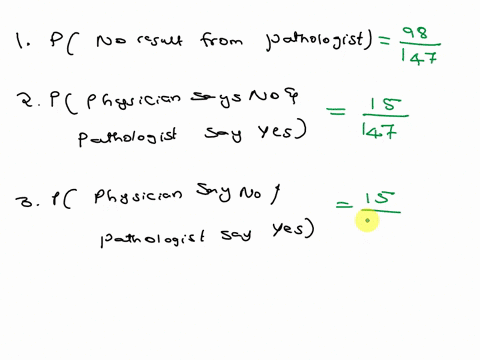 1. P( No result from pathologist) = 98/147
2. P( Physician says No &
pathologist say Yes) = 15/147
3. P( Physician Say No /
pathologist say Yes) = 15/